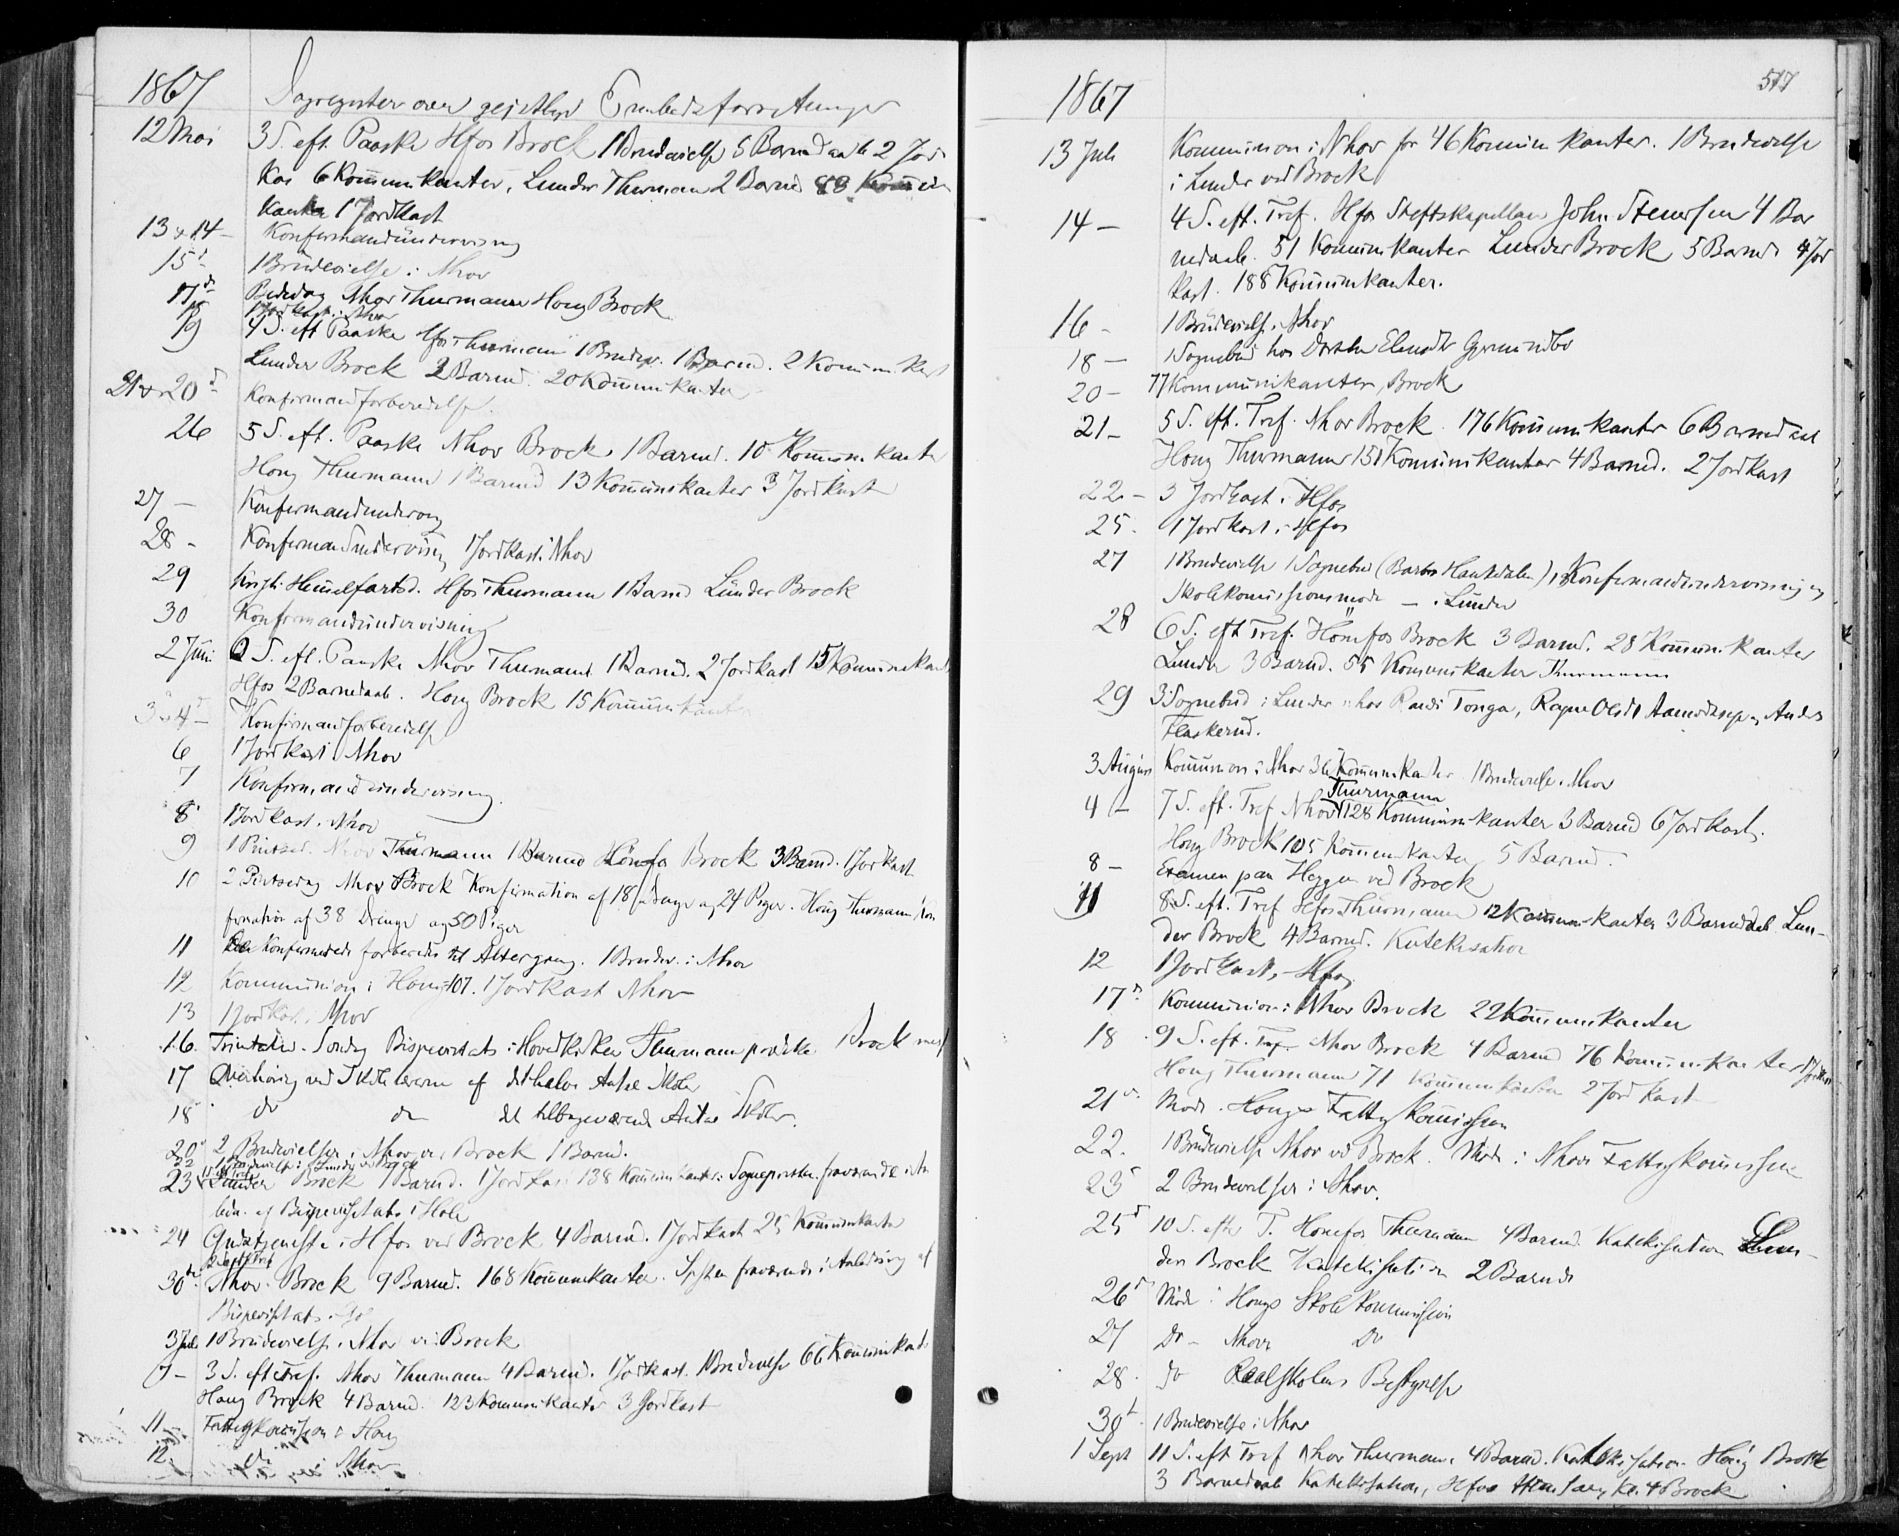 1867 Dagregister over gejstlige Embedsforretninger
12 Mai 3 S. eft. Paaske Hfos Brock 1 Brudevielse 5 Barnedaab 2 Jord
Kas 6 Kommunikanter, Lunder Thurmann 2 Barned 83 Kommuni
kanter 1 Jordkast
13 & 14 – Konfirmandundervisning
15 d 1 Brudevielse i Nhov
17 d Bededag Nhov Thurmann Houg Brock
18 1 Jordkast i Nhov
19 4 S. eft Paaske Hfos Thurmann 1 Brudev. 1 Barned. 2 Kommunikant
Lunder Brock 2 Barned. 20 Kommunikanter
21 & 20 d Konfirmandforberedelse.
26 5 S. eft. Paaske Nhov Brock 1 Barned. 10 Kommunikanter
Houg Thurmann 1 Barned 13 Kommunikanter 3 Jordkast
27 – Konfirmandunderv
28 – Konfirmandundervisning 1 Jordkast i Nhov
29 Kristi Himmelfartsd. Hfos Thurmann 1 Barned Lunder Brock
30 Konfirmandundervisning
2 Juni 6 S. eft. Paaske Nhov Thurmann 1 Barned. 2 Jordkast 15 Kommunikant
Hfos 2 Barnedaab. Houg Brock 15 Kommunikanter
3 & 4 – Konfirmandforberedelse
6 1 Jordkast i Nhov
7 Konfirmandundervisning
8 1 Jordkast i Nhov
9 1 Pintsed. Nhov Thurmann 1 Barned Hönefos Brock 3 Barned. 1 Jordkast
10 2 Pintsedag Nhov Brock Konfirmation af 18 Drenge og 24 Piger. Houg Thurmann Kon
firmation af 38 Drenge og 50 Piger
11 De Konfirmerede forberedes til Altergang. 1 Brudev. i Nhov
12 Kommunion i Houg 107. 1 Jordkast Nhov
13 1 Jordkast i Nhov
16. Trinitatis Sondag Bispevisitats i Hovedkirken Thurmann prædike Brock mes
17 Overhöring ved Skolelærerne af det halve Antal Skoler
18 do do det tilbageværende Antal Skoler.
20 2 Brudevielser i Nhov ved Brock 1 Barned.
22 1 Brudevielse i Lunder ved Brock
23 Lunder Brock 1 Barned. 1 Jordkast 138 Kommunikanter. Sognepresten fraværende i An
ledn. af Bispevisitats i Hole
24 Gudstjeneste i Hfos ved Brock 4 Barned. 1 Jordkast 25 Kommunikanter
30 Nhov Brock 9 Barned. 168 Kommunikanter. Spsten fraværende i Anledning af
Bispevisitats
3 Juli 1 Brudevielse i Nhov ved Brock
7 – 3 S. eft Tref. Nhov Thurmann 4 Barned. 1 Jordkast. 1 Brudevielse 66 Kommunikant
Houg Brock 4 Barned. 123 Kommunikanter 3 Jordkast
11 – Fattigkommission i Houg
12. do i Nhov
1867 517
13 Juli Kommunion i Nhov for 46 Kommunikanter. 1 Brudevielse
i Lunder ved Brock
14 – 4 S. eft. Tref. Hfos Stiftskapellan John Stenersen 4 Bar
nedaab. 51 Kommunikanter Lunder Brock 5 Barned 4 Jord
kast. 188 Kommunikanter.
16 – 1 Brudevielse i Nhov
18 – 1 Sognebud hos Dorthe Elensdtr Gjermundbo
20 – 77 Kommunikanter, Brock
21 – 5 S. eft. Tref. Nhov Brock. 176 Kommunikanter 6 Barnedaab
Houg Thurmann 151 Kommunikanter 4 Barned. 2 Jordkast
22 – 3 Jordkast i Hfos
25. 1 Jordkast i Hfos
27 1 Brudevielse 1 Sognebud (Barbro Hauskdalen), Konfirmandundervisning og
Skolekommissionsmöde – i Lunder
28 6 S. eft Tref. Hönefos Brock 3 Barned. 28 Kommunikanter
Lunder 3 Barned. 55 Kommunikanter Thurmann
29 3 Sognebud i Lunder hos Randi Tonga, Ragne Olsdtr og Anders
Flaskerud.
3 August Kommunion i Nhov 36 Kommunikanter 1 Brudevielse i Nhov
4 – 7 S. eft. Tref Nhov Thurmann 128 Kommunikanter 3 Barned 6 Jordkast.
Houg Brock 105 Kommunikanter 5 Barned.
8 – Examen paa Heggen ved Brock
11 8 S. eft. Tref Hfos Thurmann 12 Kommunikanter 3 Barnedaab Lun–
der Brock 4 Barned. Katekisation
12 1 Jordkast, Hfos
17 d Kommunion i Nhov Brock 22 Kommunikanter
18 9 S. eft. Tref. Nhov Brock 4 Barned 76 Kommunikanter 1 Jordkast
Houg Thurmann 71 Kommunikanter 2 Jordkast
21 d Möde i Hougs Fattigkommission
22. 1 Brudevielse Nhov ved Brock. Möde i Nhovs Fattigkommission
23 2 Brudevielser i Nhov.
25 d 10 S. efter T. Hönefos Thurmann 4 Barned Katekisation Lun–
der Brock Katekisation 2 Barned
26 d Möde i Hougs Skolekommission
27 Do – Nhovs Do
28. Do Realskolens Bestyrelse
30 1 Brudevielse i Nhov
1 Sept 11 S. eft Tref Nhov Thurmann 4 Barned. Katekisation Houg Brock
3 Barnedaab Katekisation, Hfos Aftensang Kl. 4 Brock